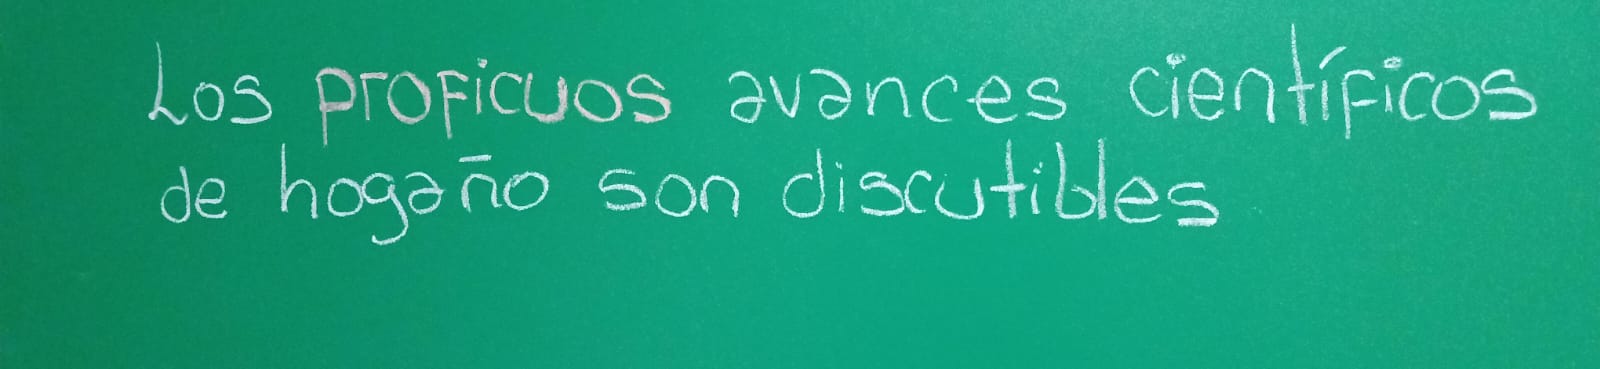 Los proficuos avances científicos
de hogaño son discutibles